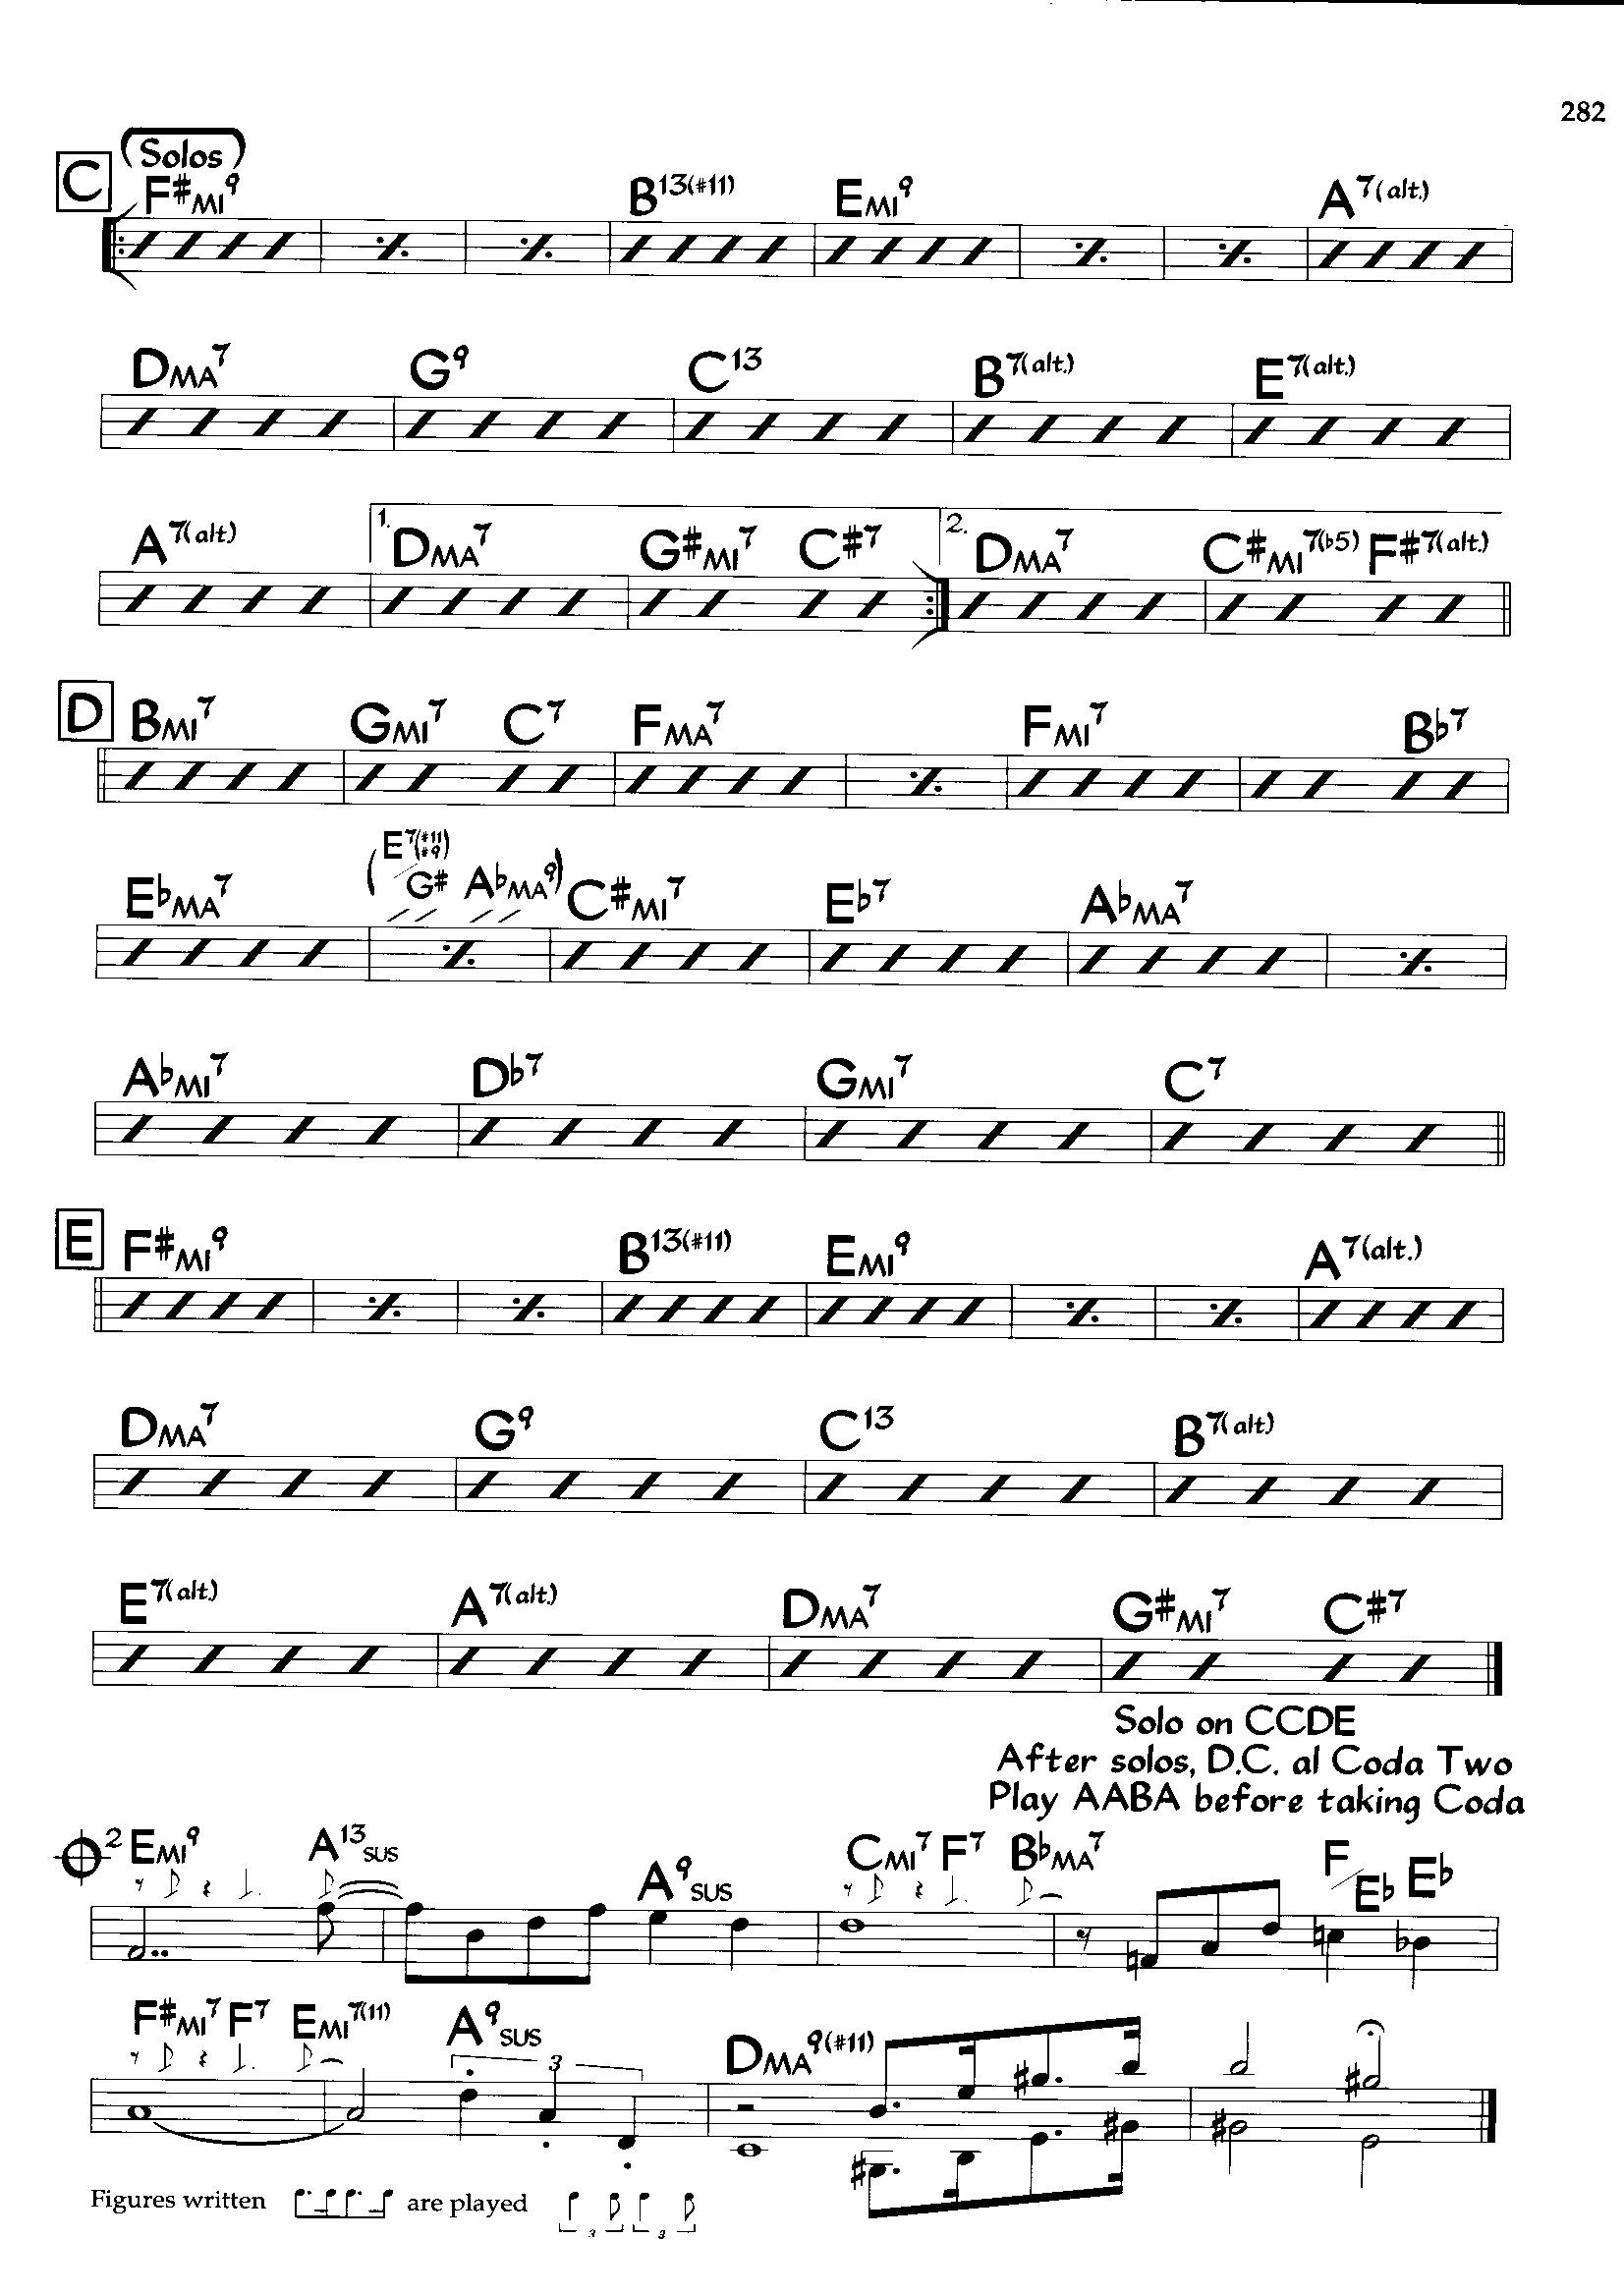 282
C (Solos)
F#MI9 B13(#11) EMI9 A7(alt.)
DMA7 G9 C13 B7(alt.) E7(alt.)
A7(alt.) 1. DMA7 G#MI7 C#7 2. DMA7 C#MI7(b5) F#7(alt.)
D BMI7 GMI7 C7 FMA7 FMI7 Bb7
EbMA7 (E7(#11 #9)/G# AbMA9) C#MI7 Eb7 AbMA7
AbMI7 Db7 GMI7 C7
E F#MI9 B13(#11) EMI9 A7(alt.)
DMA7 G9 C13 B7(alt)
E7(alt.) A7(alt.) DMA7 G#MI7 C#7
Solo on CCDE
After solos, D.C. al Coda Two
Play AABA before taking Coda
2 EMI9 A13SUS A9SUS CMI7 F7 BbMA7 F/Eb Eb
F#MI7 F7 EMI7(11) A9SUS 3 DMA9(#11)
Figures written are played 3 3